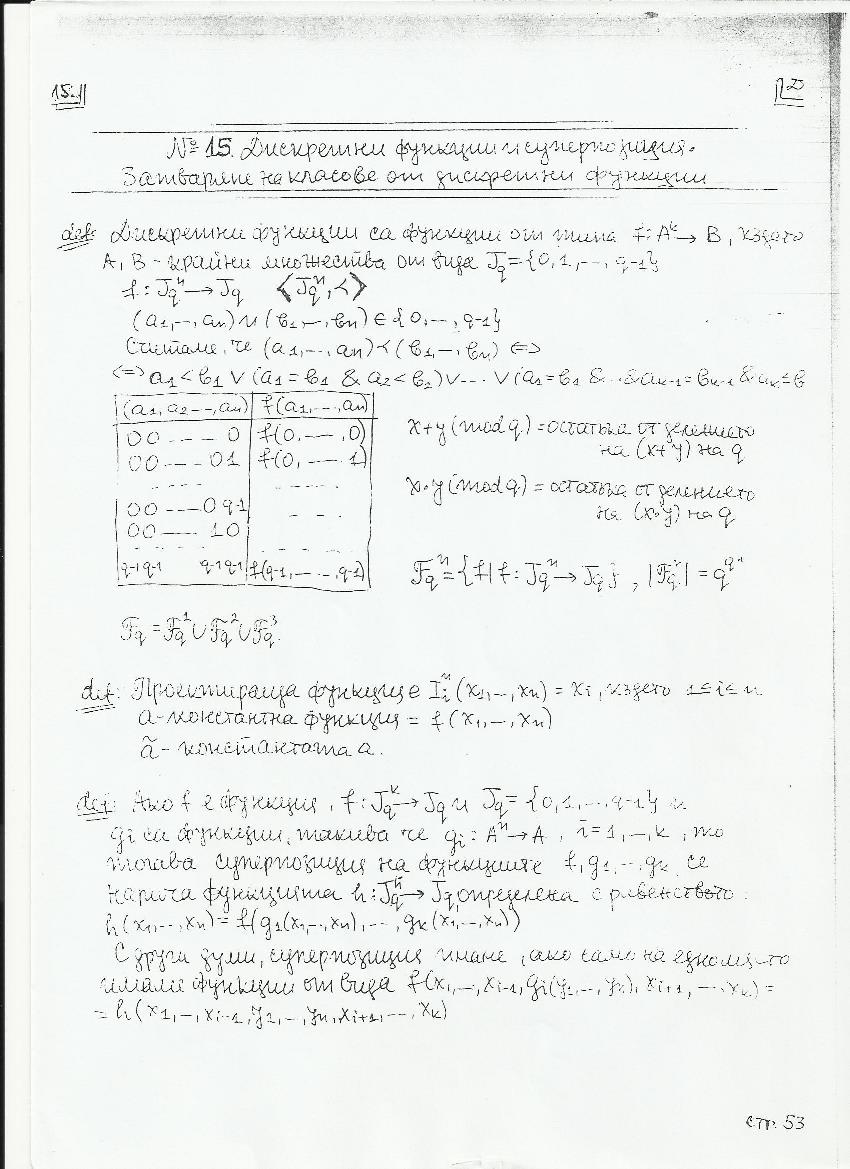 15.
№ 15. Дискретни функции и суперпозиция.
Затваряне на класове от дискретни функции
def: Дискретни функции са функции от типа f: Aᵏ → B, където
A, B - крайни множества от вида J_q = {0, 1, ..., q-1}
f: J_qⁿ → J_q ⟨J_qⁿ, <⟩
(a₁, ..., aₙ) и (b₁, ..., bₙ) ∈ {0, ..., q-1}
Считаме, че (a₁, ..., aₙ) < (b₁ ..., bₙ) <=>
<=> a₁ < b₁ ∨ (a₁ = b₁ & a₂ < b₂) ∨ ... ∨ (a₁ = b₁ & ... & aₙ₋₁ = bₙ₋₁ & aₙ ≤ b
(a₁, a₂ ..., aₙ) f(a₁, ..., aₙ)
00 ---- 0 f(0, ---, 0)
00 --- 01 f(0, --- 1)
----
00 --- 0 q-1 - - -
00 --- 10
- - - - - - -
q-1 q-1 q-1 q-1 f(q-1, ..., q-1)
x+y (mod q) = остатъка от делението
на (x+y) на q
x.y (mod q) = остатъка от делението
на (x.y) на q
F_qⁿ = {f | f: J_qⁿ → J_q}, |F_qⁿ| = q^qⁿ
F_q = F_q¹ ∪ F_q² ∪ F_q³.
def: Проектираща функция е Iᵢⁿ(x₁, ..., xₙ) = xᵢ, където 1 ≤ i ≤ n
a - константна функция = f(x₁, ..., xₙ)
ã - константата a.
def: Ако f е функция, f: J_qᵏ → J_q и J_q = {0, 1, ..., q-1} и
gᵢ са функции, такива че gᵢ: Aⁿ → A, i = 1, ..., k, то
тогава суперпозиция на функциите f, g₁, ..., gₖ се
нарича функцията h: J_qⁿ → J_q, определена с равенството:
h(x₁, ..., xₙ) = f(g₁(x₁, ..., xₙ), ..., gₖ(x₁, ..., xₙ))
С други думи, суперпозиция имаме, ако само на едно място
имаме функции от вида f(x₁, ..., xᵢ₋₁, gᵢ(y₁, ..., yₙ), xᵢ₊₁, ..., xₖ) =
= h(x₁, ..., xᵢ₋₁, y₁, ..., yₙ, xᵢ₊₁, ..., xₖ)
стр. 53